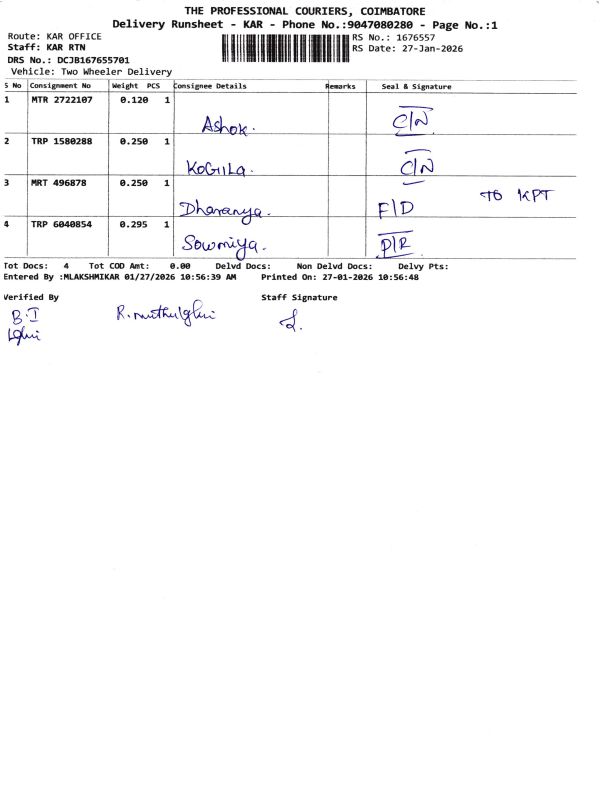 THE PROFESSIONAL COURIERS, COIMBATORE
Delivery Runsheet - KAR - Phone No.:9047080280 - Page No.:1
Route: KAR OFFICE RS No.: 1676557
Staff: KAR RTN RS Date: 27-Jan-2026
DRS No.: DCJB167655701
Vehicle: Two Wheeler Delivery
S No Consignment No Weight PCS Consignee Details Remarks Seal & Signature
1 MTR 2722107 0.120 1
Ashok. C/N
2 TRP 1580288 0.250 1
KoGila. C/N
3 MRT 496878 0.250 1
Dharanya. F/D TO KPT
4 TRP 6040854 0.295 1
Sowmiya. D/R
Tot Docs: 4 Tot COD Amt: 0.00 Delvd Docs: Non Delvd Docs: Delvy Pts:
Entered By :MLAKSHMIKAR 01/27/2026 10:56:39 AM Printed On: 27-01-2026 10:56:48
Verified By Staff Signature
B.I R.